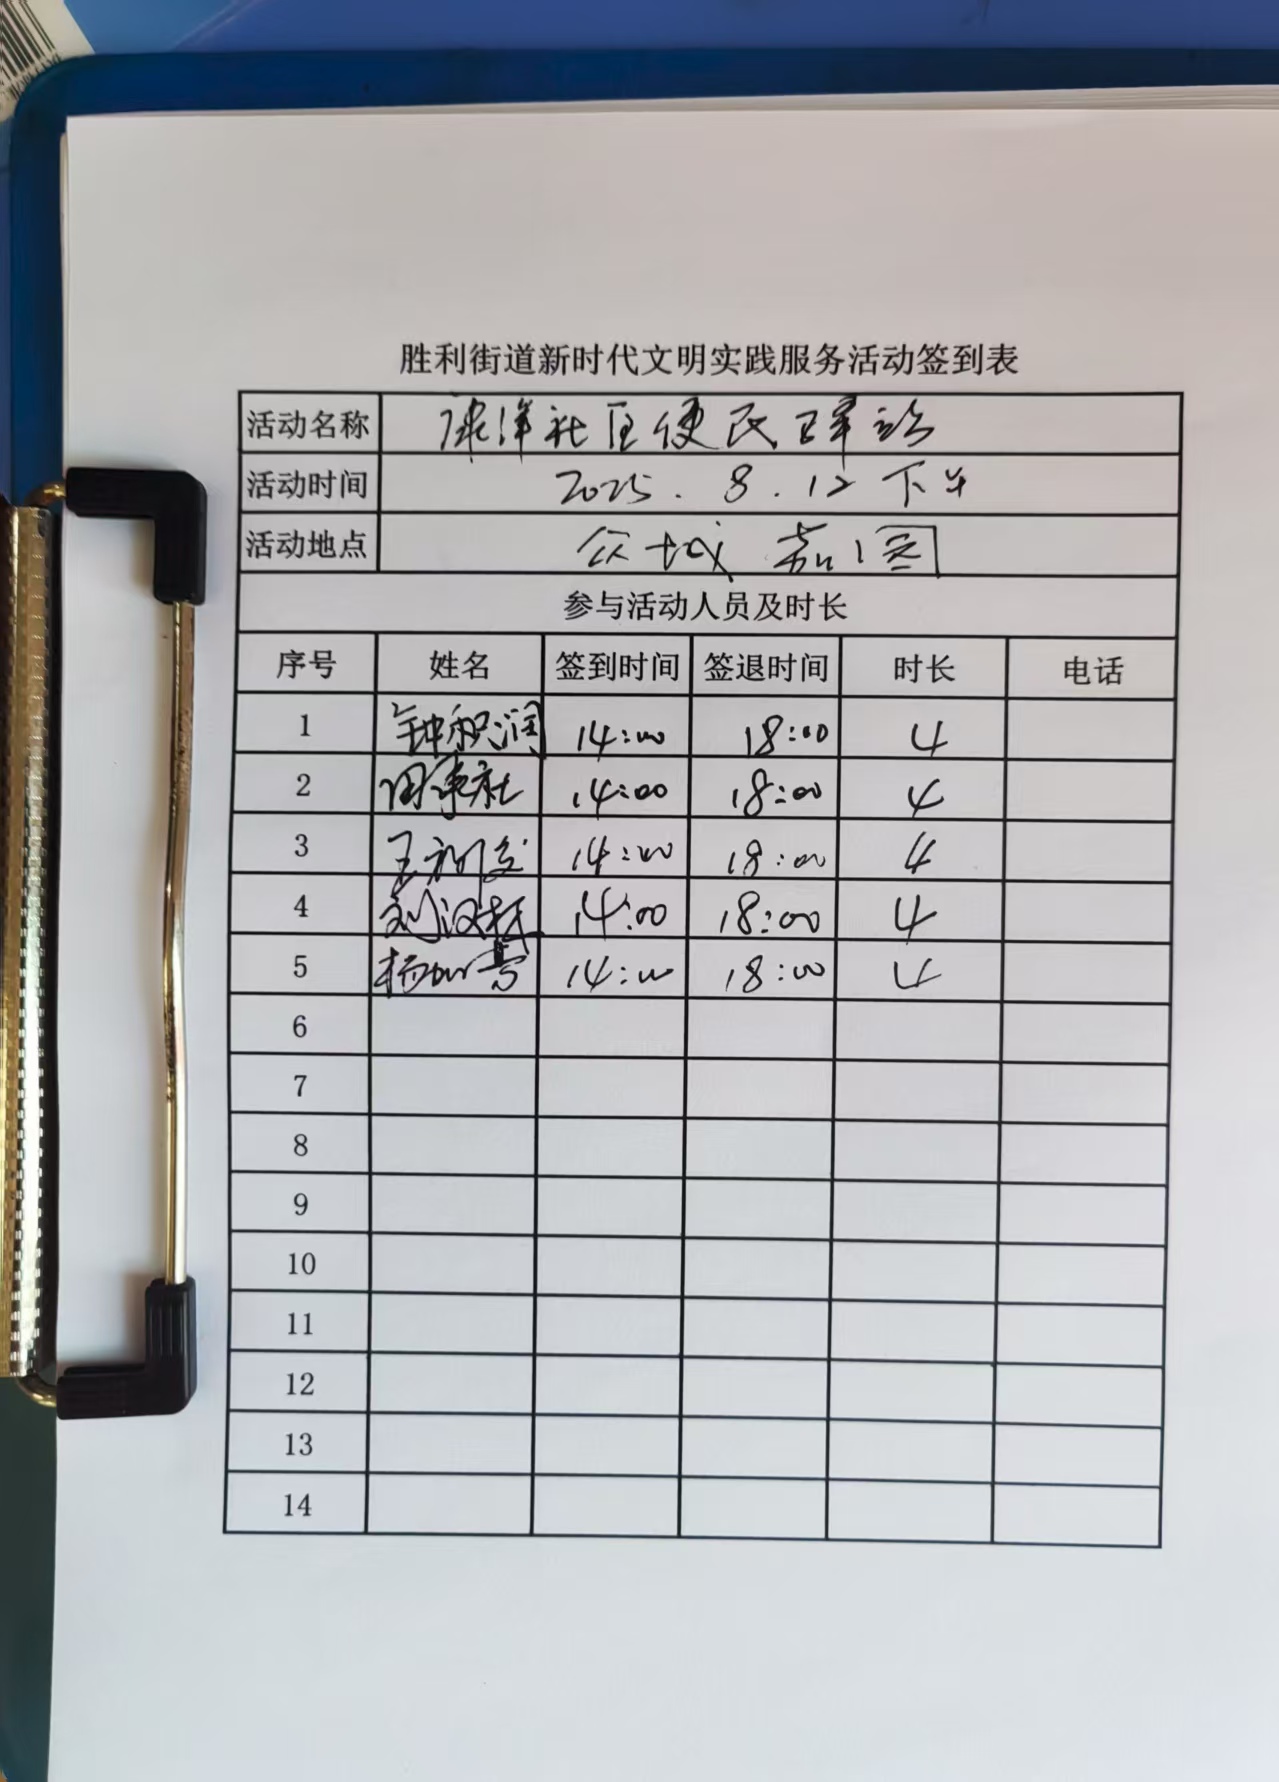 胜利街道新时代文明实践服务活动签到表
活动名称 康洋社区便民驿站
活动时间 2025.8.12下午
活动地点 众城嘉园
参与活动人员及时长
序号 姓名 签到时间 签退时间 时长 电话
1 钟积润 14:00 18:00 4
2 14:00 18:00 4
3 14:00 18:00 4
4 14:00 18:00 4
5 14:00 18:00 4
6
7
8
9
10
11
12
13
14